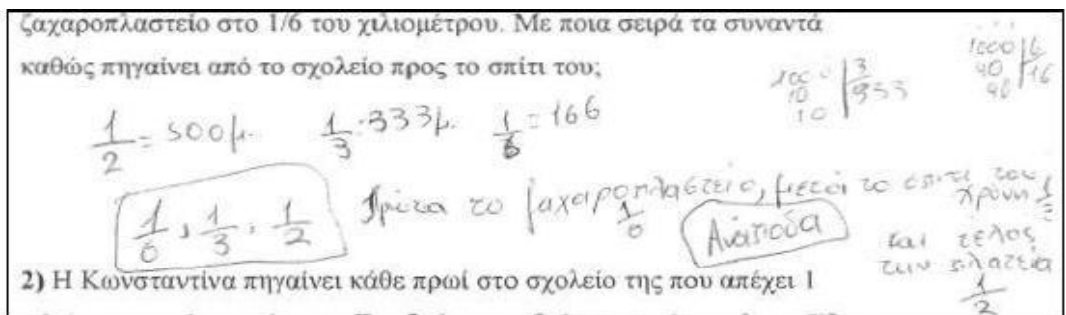 ζαχαροπλαστείο στο 1/6 του χιλιομέτρου. Με ποια σειρά τα συναντά
καθώς πηγαίνει από το σχολείο προς το σπίτι του;
1000 | 3
10 | 333
10
1000 | 6
40 | 16
40
1/2 = 500μ. 1/3 · 333μ. 1/6 = 166
1/6, 1/3, 1/2
Πρώτα το ζαχαροπλαστείο, μετά το σπίτι του
1/6
Ανάποδα
και τέλος
την πλατεία
1/2
2) Η Κωνσταντίνα πηγαίνει κάθε πρωί στο σχολείο της που απέχει 1